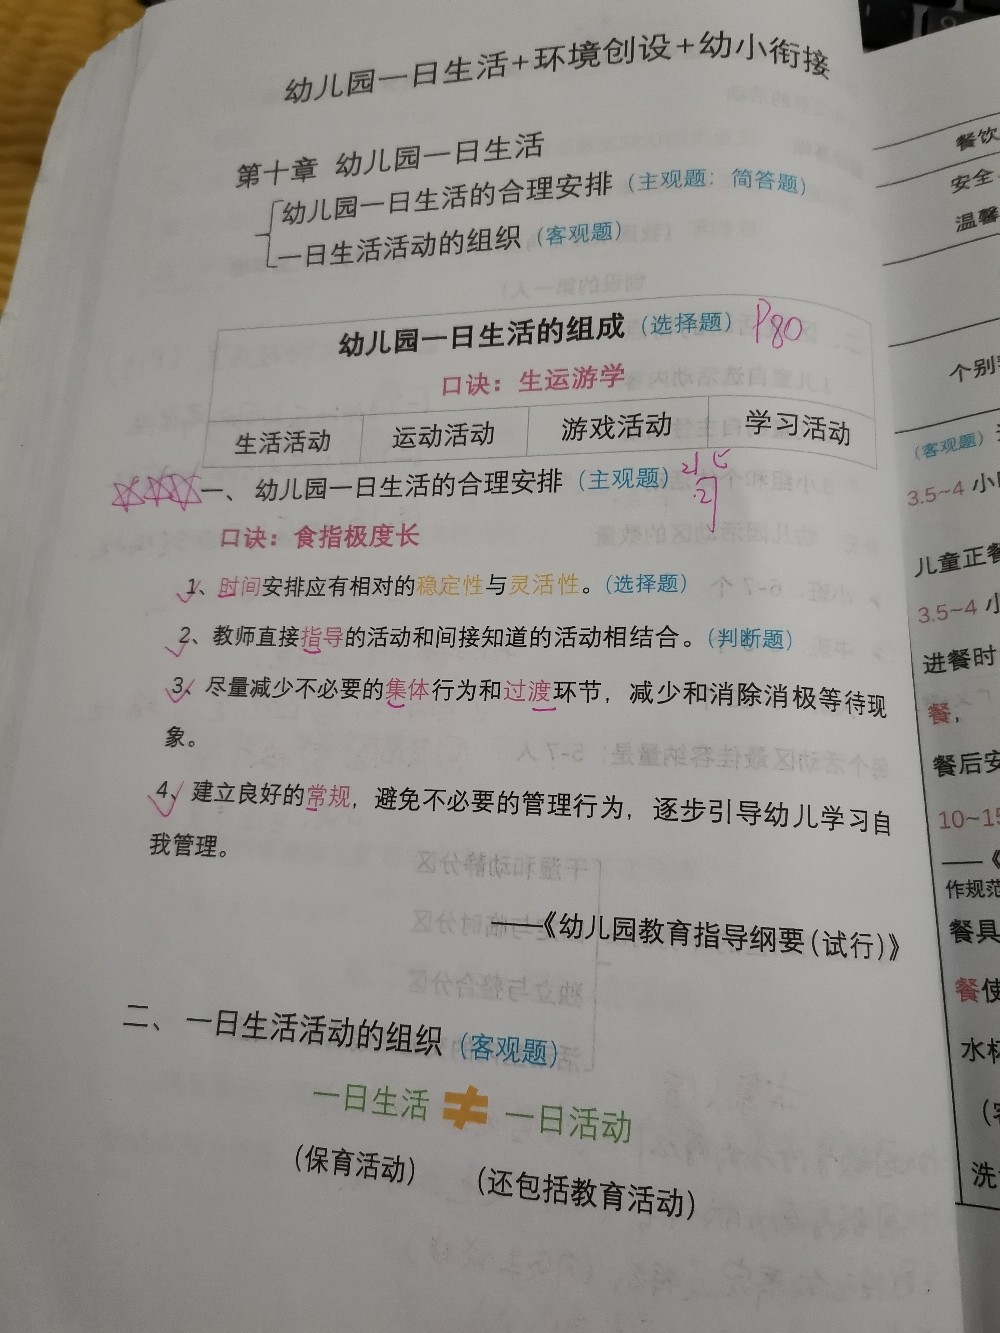 幼儿园一日生活+环境创设+幼小衔接
第十章 幼儿园一日生活
幼儿园一日生活的合理安排（主观题：简答题）
一日生活活动的组织（客观题）
幼儿园一日生活的组成（选择题） P80
口诀：生运游学
生活活动 运动活动 游戏活动 学习活动
一、幼儿园一日生活的合理安排（主观题）
口诀：食指极度长
1、时间安排应有相对的稳定性与灵活性。（选择题）
2、教师直接指导的活动和间接知道的活动相结合。（判断题）
3、尽量减少不必要的集体行为和过渡环节，减少和消除消极等待现
象。
4、建立良好的常规，避免不必要的管理行为，逐步引导幼儿学习自
我管理。
——《幼儿园教育指导纲要（试行）》
二、一日生活活动的组织（客观题）
一日生活 ≠ 一日活动
（保育活动） （还包括教育活动）
餐饮
安全
温馨
个别
（客观题）
3.5~4 小
儿童正餐
3.5~4 小
进餐时
餐，
餐后安
10~15
——《
作规范
餐具
餐使
水杯
洗